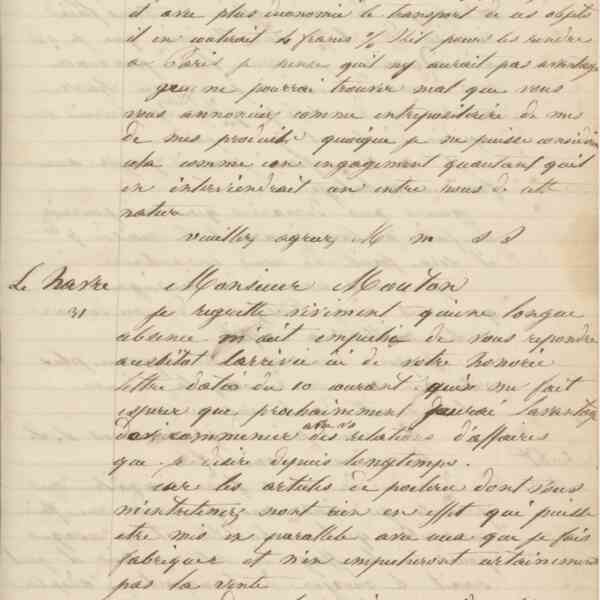 et avec plus d'économie le transport de ces objets
il en coûterait 4 francs % kil pour les rendre
a Paris je pense qu'il n'y aurait pas avantage
je ne pourrai trouver mal que vous
vous annonciez comme entrepositaire de mes
de mes produits quoique je ne puisse considérer
cela comme un engagement qu'autant qu'il
en interviendrait un entre nous de cette
nature
veuillez agréer M m s s
Le havre Monsieur Mouton
31 je regrette vivement qu'une longue
absence m'ait empêché de vous répondre
aussitot l'arrivée ici de votre honorée
lettre datée du 10 courant qui me fait
esperer que prochainement j'aurai l'avantage
de commencer avec vs des relations d'affaires
que je désire depuis longtemps.
car les articles de dont vous
m'entretenez n'ont rien en effet qui puisse
etre mis en parallele avec ceux que je fais
fabriquer et n'en empecheront certainement
pas la vente